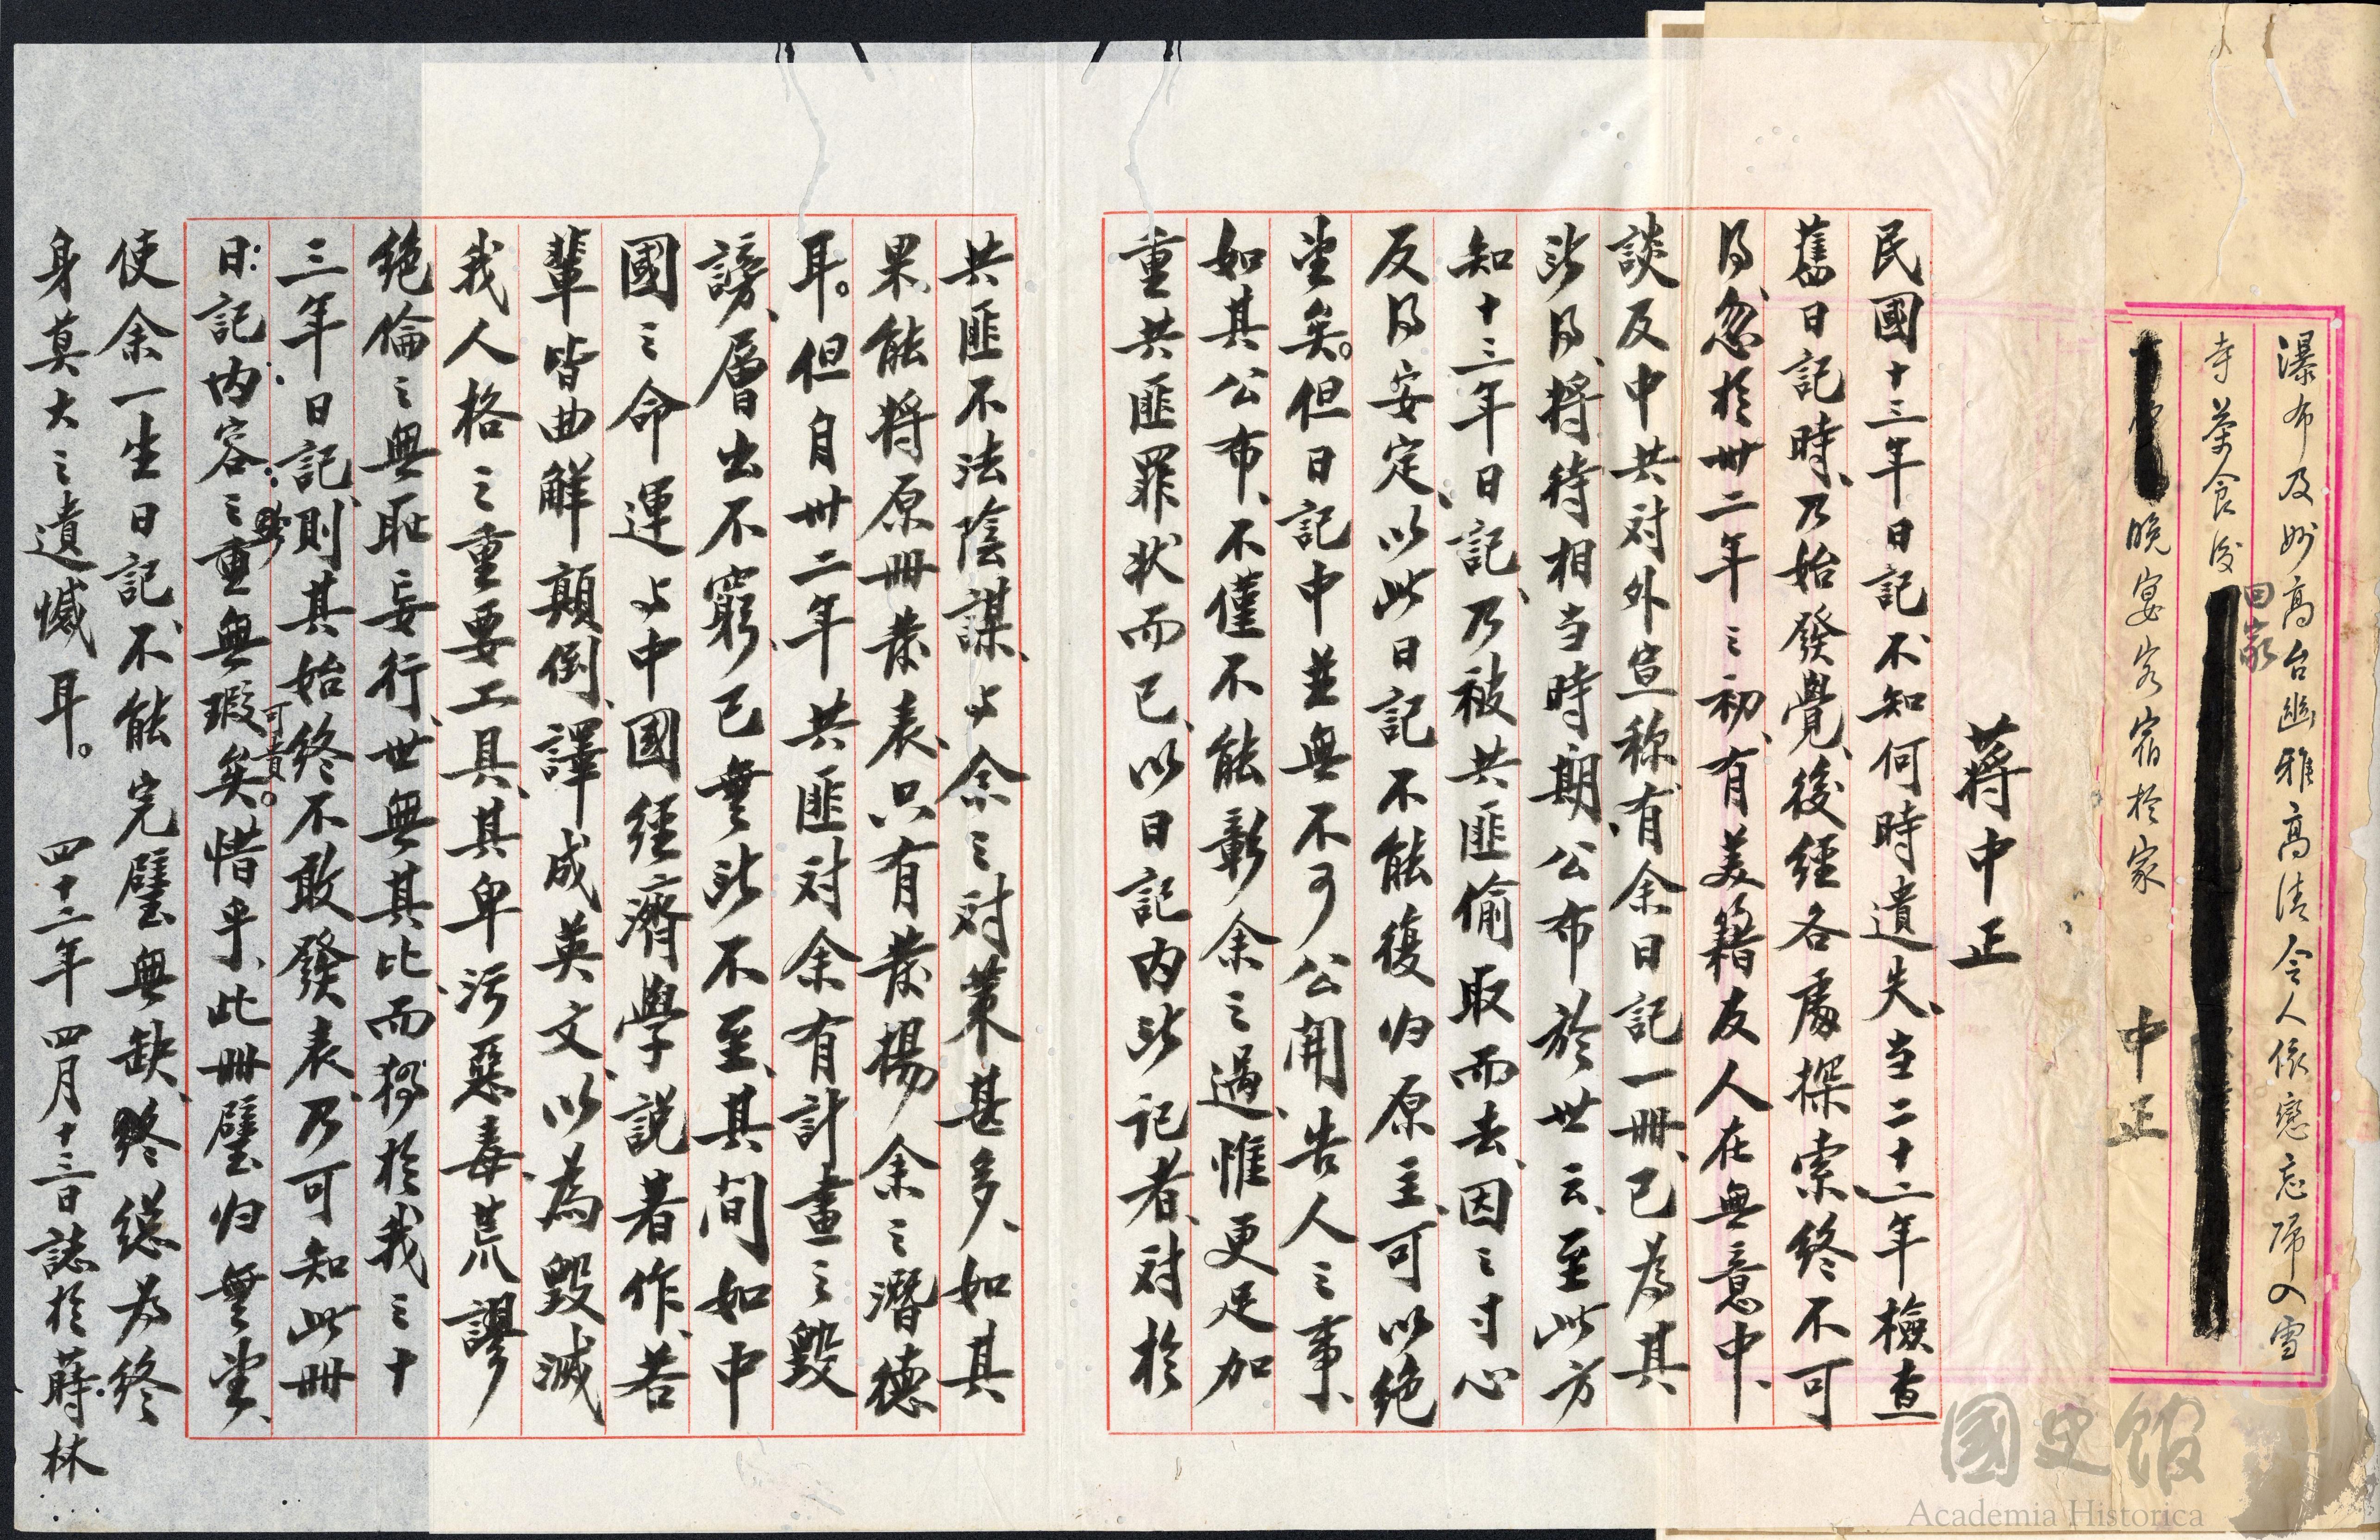 瀑布及妙高台幽雅高清令人依戀忘歸入雪
寺茶食後回家
晚宴客宿於家 中正
蔣中正
民國十三年日記、不知何時遺失、当二十二年檢查
舊日記時、乃始發覺、後經各處探索、終不可
得、忽於卅二年之初、有美籍友人在無意中、
談及中共对外宣称、有余日記一冊、已為其
所得、將待相当時期、公布於世云、至此方
知十三年日記、乃被共匪偷取而去、因之寸心
反得安定、以此日記不能復归原主、可以絕
望矣。但日記中並無不可公開告人之事、
如其公布、不僅不能彰余之過、惟更足加
重共匪罪狀而已、以日記內所記者、对於
共匪不法陰謀、与余之对策甚多、如其
果能將原冊發表、只有發揚余之潛德
耳。但自卅二年共匪对余有計畫之毀
謗、層出不窮、已無所不至、其间如中
國之命運与中國經濟學說著作、若
輩皆曲解顛倒、譯成英文、以為毀滅
我人格之重要工具、其卑污惡毒、荒謬
絕倫之無恥妄行、世無其比、而獨於我之十
三年日記、則其始終不敢發表、乃可知此冊
日記內容之重無瑕可貴矣。惜乎、此冊璧归無望、
使余一生日記、不能完璧無缺、終總為終
身莫大之遺憾耳。 四十三年四月十三日誌於蒔林
國史館
Academia Historica